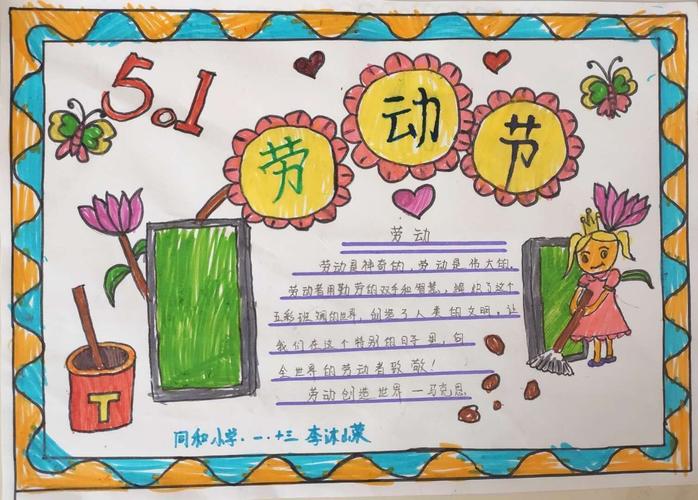 5.1
劳动节
劳动
劳动是神奇的,劳动是伟大的.
劳动者用勤劳的双手和智慧,编织了这个
五彩班斓的世界,创造了人类的文明,让
我们在这个特别的日子里,向
全世界的劳动者致敬!
劳动创造世界 —马克思
T
同和小学.一.十三 李沐